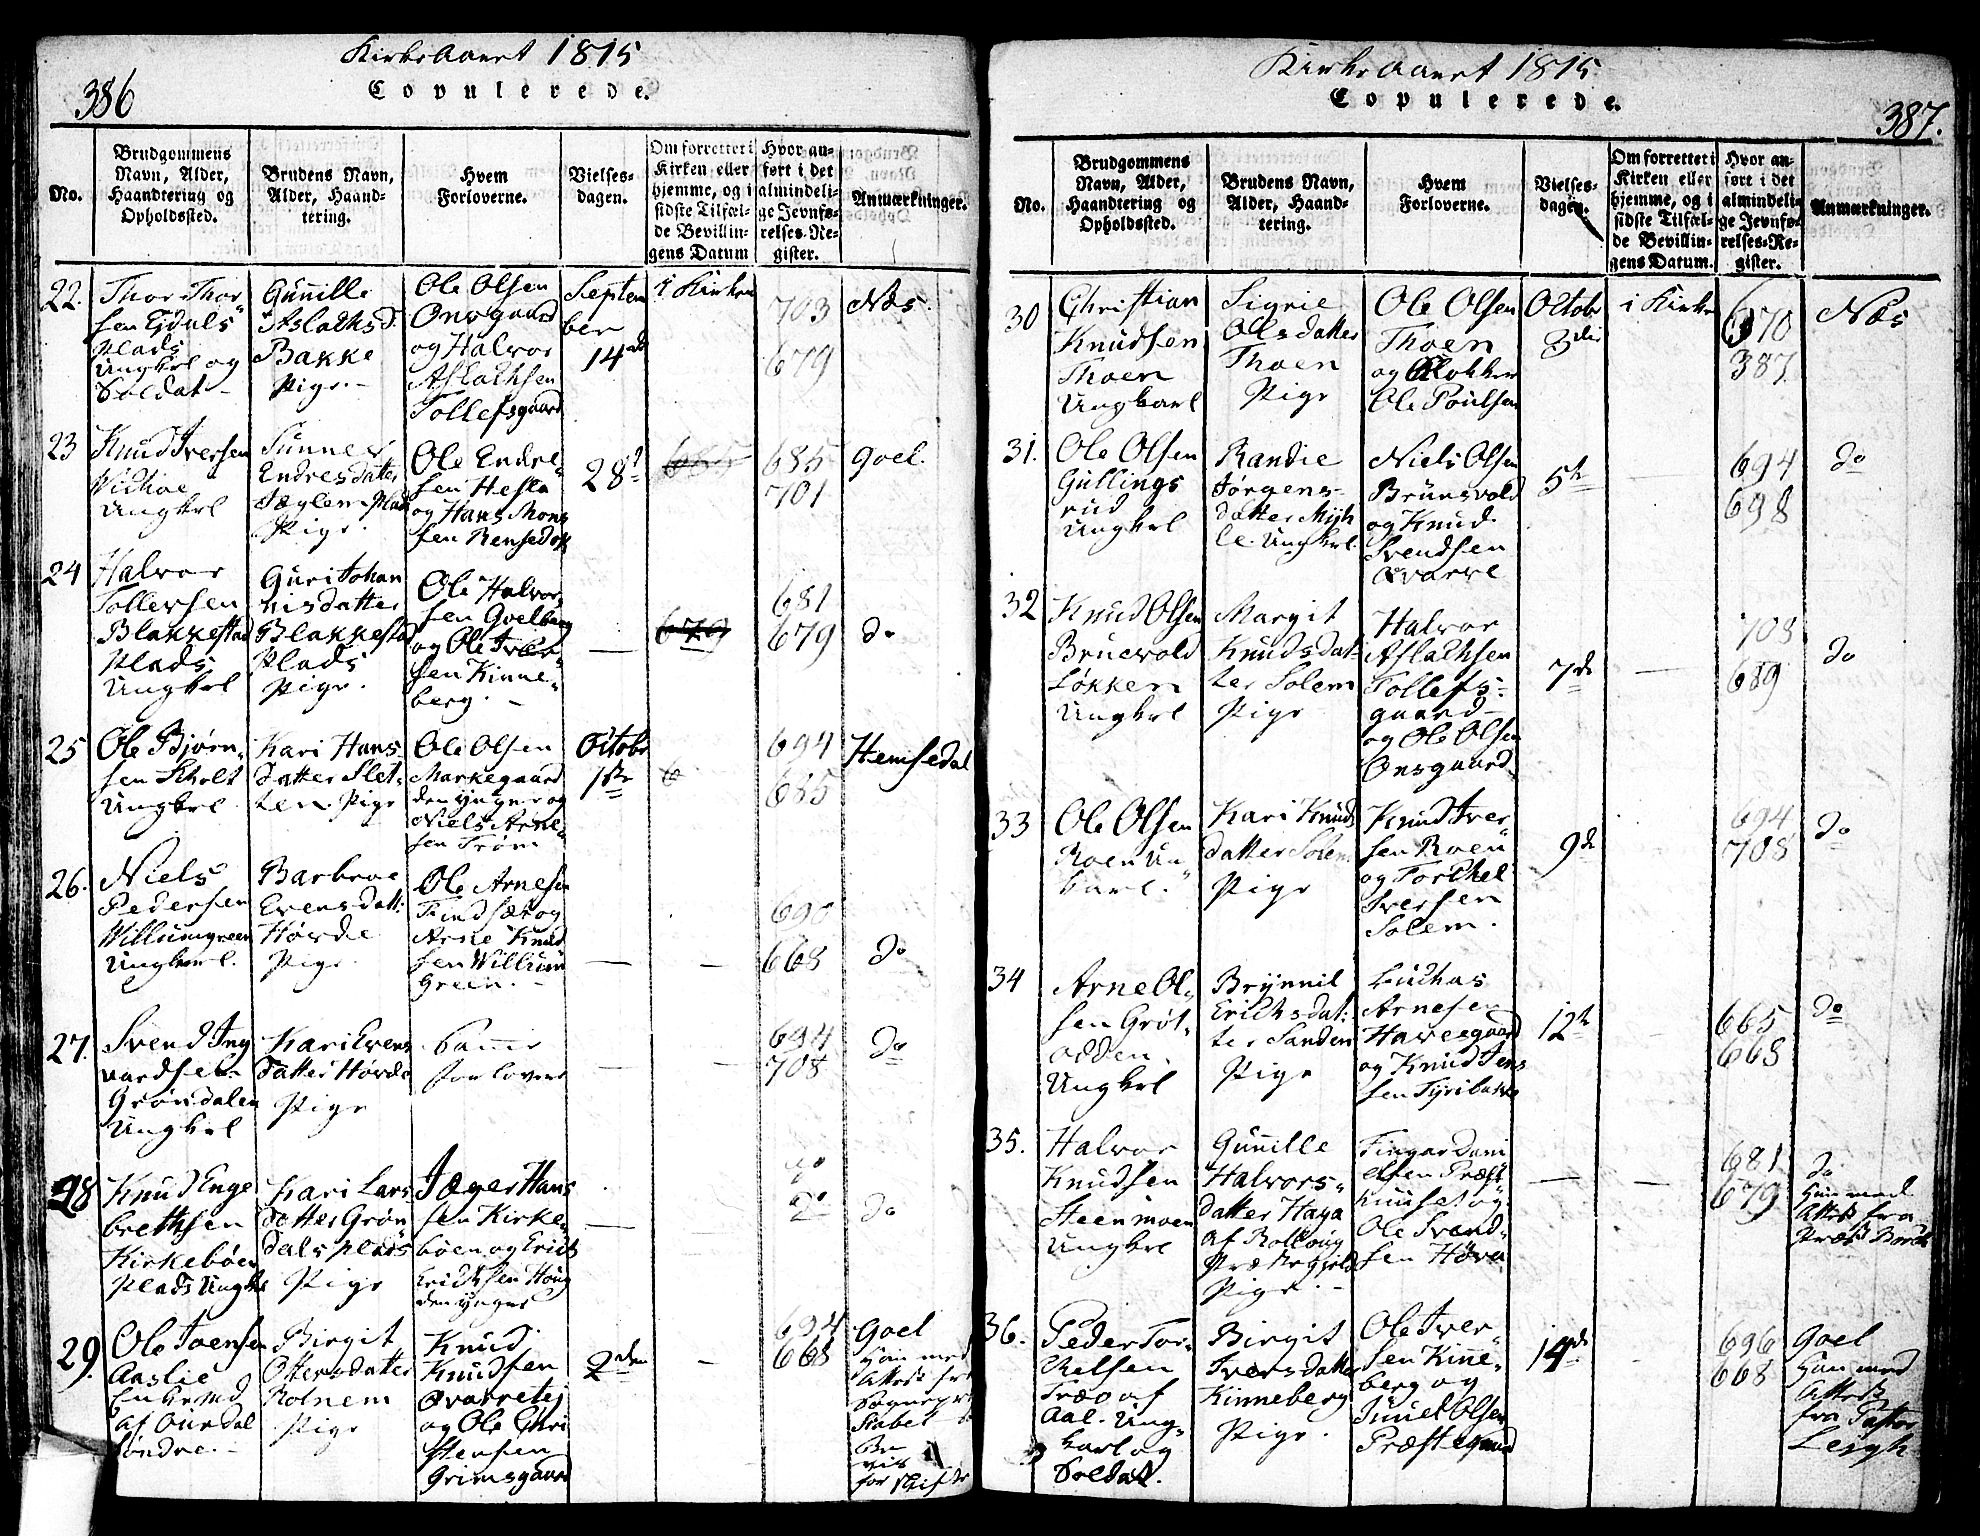 386
Kirkeaaret 1815
Copulerede.
No.
Brudgommens
Navn, Alder,
Haandtering og
Opholdssted.
Brudens Navn,
Alder, Haand-
tering.
Hvem
Forloverne.
Vielses-
dagen.
Om forrettet i
Kirken eller
hjemme, og i
sidste Tilfæl-
de Bevillin-
gens Datum
Hvor an-
ført i det
almindeli-
ge Jevnfø-
relses-Re-
gister.
Anmærkninger.
22.
Thor Thor
sen Ejdals
Plads
Ungkrl og
Soldat
Gunille
Aslachsd.
Bakke
Pige.
Ole Olsen
Onsgaard
og Halvor
Aslachsen
Tollefsgaard
Septem
ber
14de
i Kirken
703
679
Næs.
23
Knud Iversen
Vidhoe
Ungkrl
Sunnev
Endresdatter
Plads
Pige.
Ole Endre
sen Hesla
og Hans Mons
sen
28d
685
701
Goel.
24
Halvor
Tollevsen
Blakkestad
Plads
Ungkrl
Guri Johan
nisdatter
Blakkestad
Plads
Pige.
Ole Halvor
sen Goelberg
og Ole Iver
sen Kinne
berg.
679
681
679
do
25
Ole Bjørn
sen Skolt
Ungkrl
Kari Hans
datter Slet
ten. Pige
Ole Olsen
Markegaard
den yngre og
Niels Arne
sen Trøm
Octobr
1ste
694
685
Hemsedal
26.
Niels
Pedersen
Willumgreen
Ungkarl.
Barbroe
Evensdatt:
Hovde
Pige.
Ole Arnesen
og
Arne Knud
sen Willum
Green.
690
668
do
27.
Svend Ing
vardsen
Grøndalen
Ungkrl
Kari Evens
datter Hovde
Pige
Samme
Forlovere
694
708
do
28
Knud Enge
brethsen
Kirkebøen
Plads Ungkr
Kari Lars
datter Grøn
dals plads
Pige
Jæger Hans
sen Kirke
bøen og Erich
Erichsen
den yngre
do
do
do
29.
Ole Toensen
Aaslie
Enkemd
af Ourdal
søndre.
Birgit
Ottersdatter
Rotnem
Pige
Knud
Knudsen
Qvarretej
og Ole Chri
stensen
Grimsgaard
2den
694
668
Goel
Han med
Attest fra
Sognepr
Stabel
Be
vis
for skifte
387.
Kirkeaaret 1815
Copulerede.
No.
Brudgommens
Navn, Alder,
Haandtering og
Opholdssted.
Brudens Navn,
Alder, Haand-
tering.
Hvem
Forloverne.
Vielses-
dagen.
Om forrettet i
Kirken eller
hjemme, og i
sidste Tilfæl-
de Bevillin-
gens Datum.
Hvor an-
ført i det
almindeli-
ge Jevnfø-
relses-Re-
gister.
Anmærkninger.
30
Christian
Knudsen
Thoen
Ungkarl
Sigrie
Olsdatter
Thoen
Pige
Ole Olsen
Thoen
og Klokker
Ole Poulsen
Octobr
3die
i Kirke
670
387
Næs
31.
Ole Olsen
Gullings
rud
Ungkrl
Randie
Jørgens-
datter Myh
le. Ungkrl.
Niels Olsen
Brunsvold
og Knud
Svendsen
Qvarve
5te
694
698
do
32
Knud Olsen
Bruevold
Løkken
Ungkrl
Margit
Knudsdat-
ter Solem
Pige
Halvor
Aslachsen
Tollefs-
gaard
og Ole Olsen
Onsgaard
7de
708
689
do
33
Ole Olsen
Roen Un
karl.
Kari Knuds
datter Solem
Pige
Knud Iver
sen Roen
og Torchel
Iversen
Solem.
9de
694
708
do
34
Arne Ol
sen Grøt
odden.
Ungkrl
Brynnil
Erichsdat:
ter Sanden
Pige
Luchas
Arnesen
Havergaard
og Knud Jens
sen Tyribakke
12te
665
668
do
35.
Halvor
Knudsen
Steenmoen
Ungkrl
Gunille
Halvors-
datter Haga
af Rolloug
Præstegjeld
Pige.
Fingar Dani
elsen Præst
og
Ole Svend
sen
681
679
do
Hun med
Attest fra
Præst
36.
Peder Tor
kelsen
Træo af
Aal. Ung-
karl og
Soldat.
Birgit
Iversdatter
Kinneberg
Pige.
Ole Iver
sen Kinne
berg og
Truuel Olsen
Præstegaard
14de
696
668
Goel
Han med
Attest
fra Pastor
Leigh